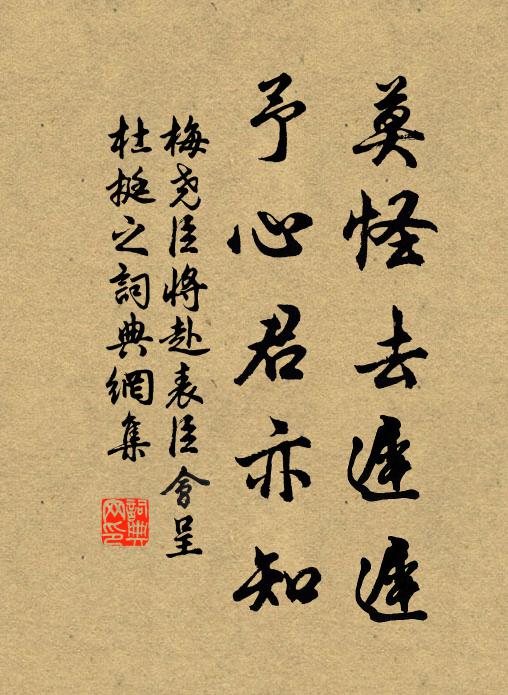 莫怪去遲遲
予心君亦知
梅尧臣將赴表臣會呈
杜挺之詞典網集
詞典网印